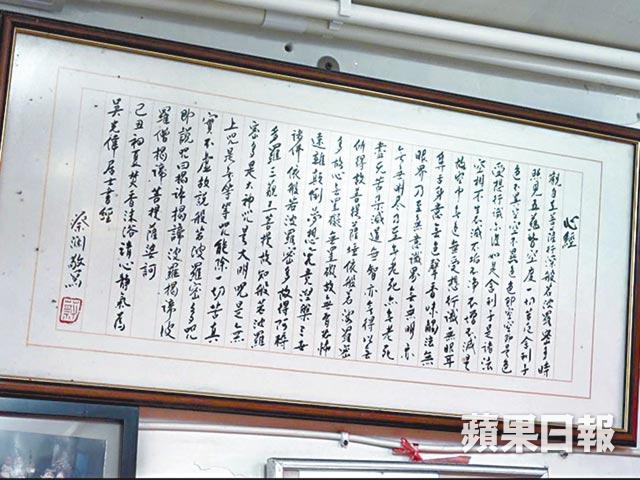 心經
觀自在菩薩行深般若波羅蜜多時
照見五蘊皆空度一切苦厄舍利子
色不異空空不異色色即是空空即是色
受想行識亦復如是舍利子是諸法
空相不生不滅不垢不淨不增不減是
故空中無色無受想行識無眼耳
鼻舌身意無色聲香味觸法無
眼界乃至無意識界無無明亦
無無明盡乃至無老死亦無老死
盡無苦集滅道無智亦無得以無
所得故菩提薩埵依般若波羅蜜
多故心無罣礙無罣礙故無有恐怖
遠離顛倒夢想究竟涅槃三世
諸佛依般若波羅蜜多故得阿耨
多羅三藐三菩提故知般若波羅
蜜多是大神咒是大明咒是無
上咒是無等等咒能除一切苦真
實不虛故說般若波羅蜜多咒
即說咒曰揭諦揭諦波羅揭諦波
羅僧揭諦菩提薩婆訶
己丑初夏焚香沐浴清心靜氣為
吳光偉居士書經
蔡瀾敬寫
蘋果日報